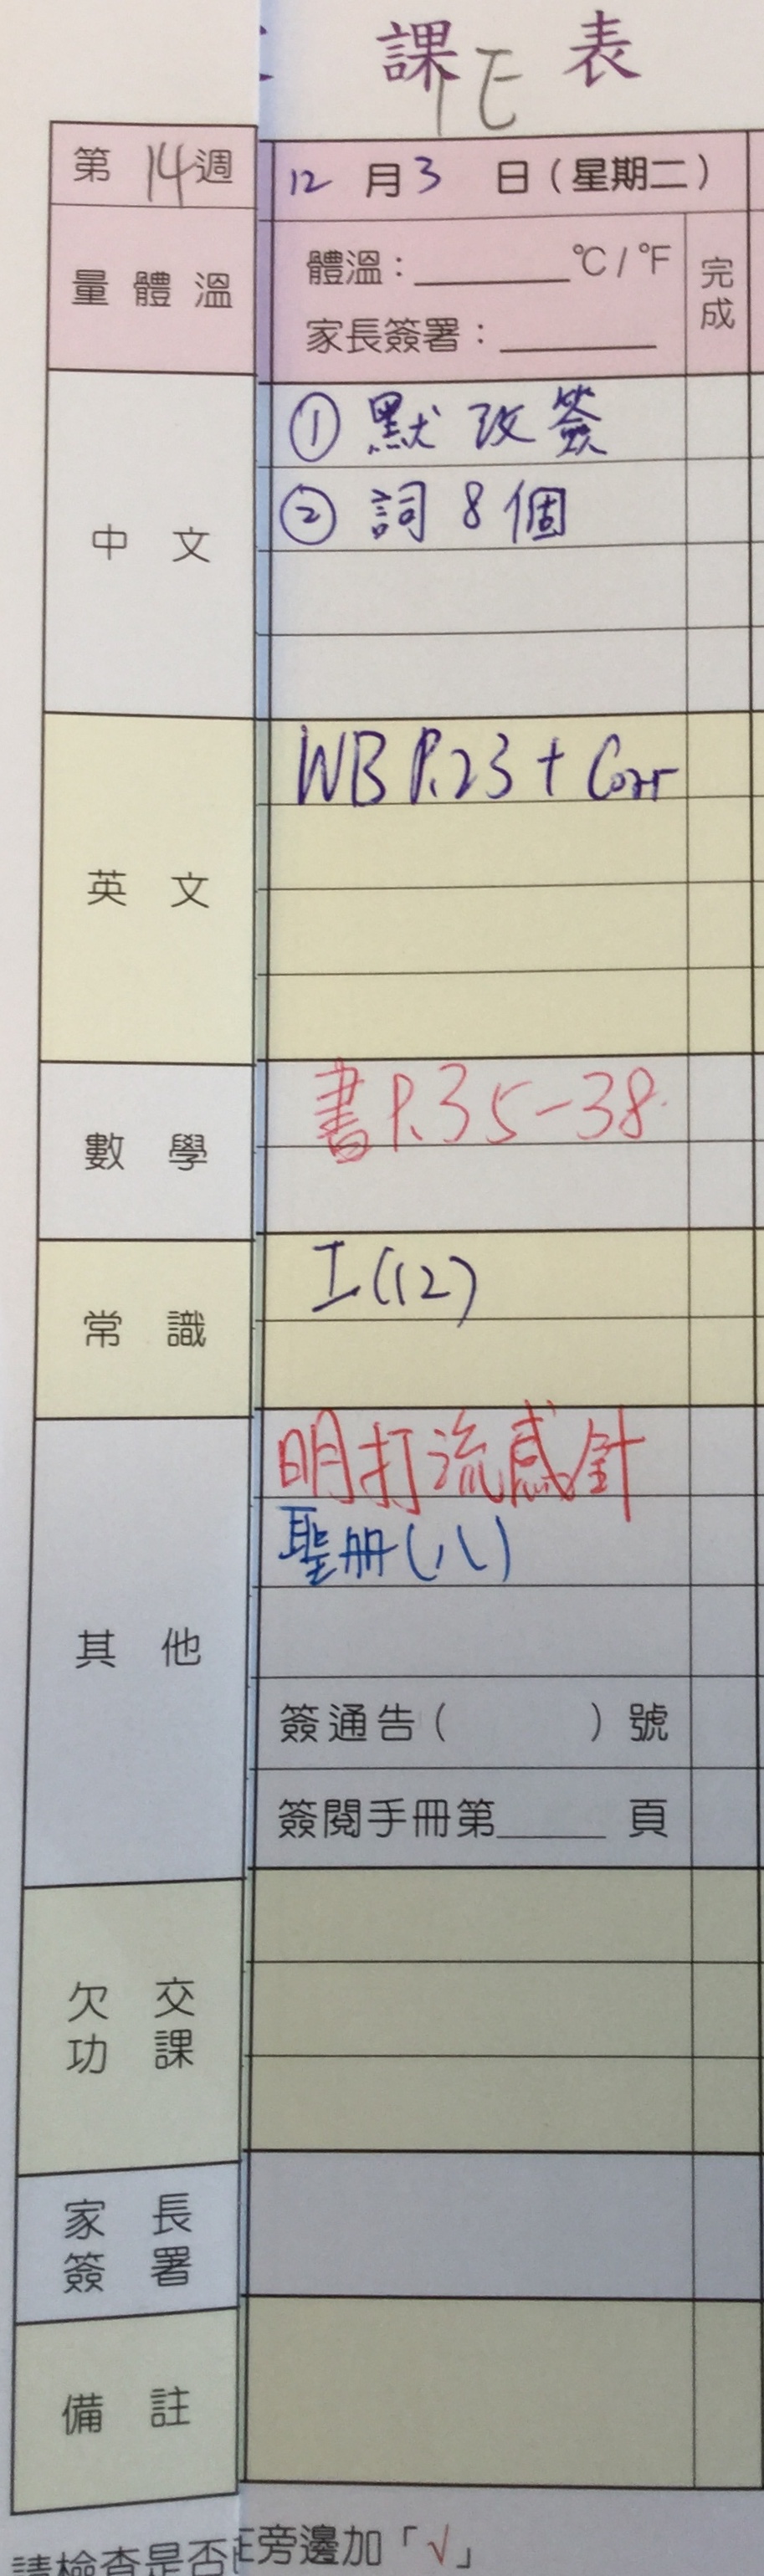 課表
1E
第14週
12月3日(星期二)
量體溫
體溫：______°C/°F
家長簽署：______
完成
中文
① 默改簽
② 詞8個
英文
WB P.23 + Corr
數學
書P.35-38
常識
工(12)
其他
明打流感針
聖冊(八)
簽通告(    )號
簽閱手冊第____頁
欠交功課
家長簽署
備註
請檢查是否
旁邊加「√」